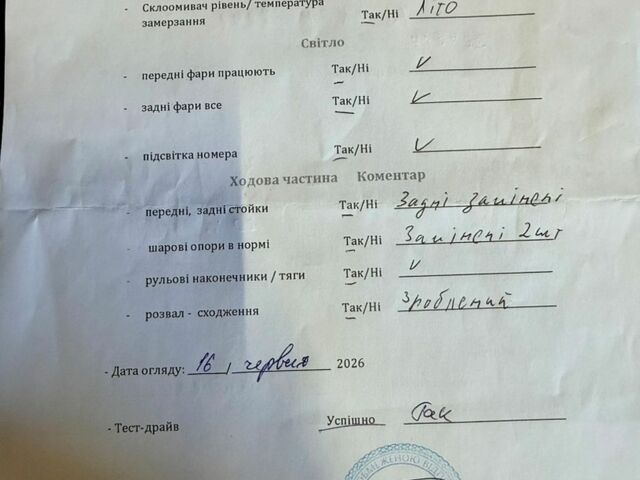 - Склоомивач рівень/ температура замерзання Так/Ні ЛІТО
Світло
- передні фари працюють Так/Ні V
- задні фари все Так/Ні V
- підсвітка номера Так/Ні V
Ходова частина Коментар
- передні, задні стойки Так/Ні Задні замінені
- шарові опори в нормі Так/Ні Замінені 2шт
- рульові наконечники / тяги Так/Ні V
- розвал - сходження Так/Ні Зроблений
- Дата огляду: 16 / червня 2026
- Тест-драйв Успішно Так